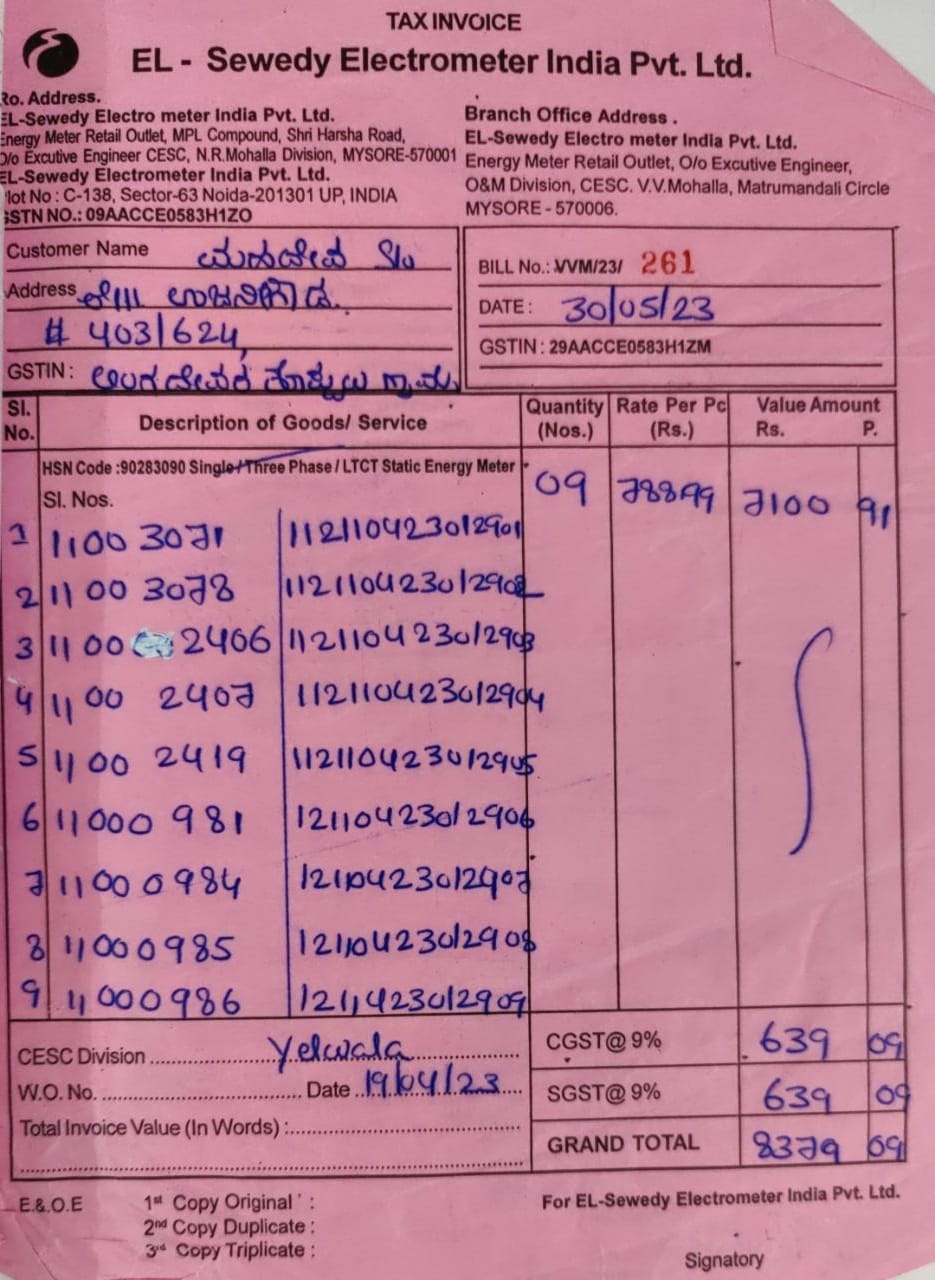 TAX INVOICE
EL - Sewedy Electrometer India Pvt. Ltd.
Ro. Address.
EL-Sewedy Electro meter India Pvt. Ltd.
Energy Meter Retail Outlet, MPL Compound, Shri Harsha Road,
O/o Excutive Engineer CESC, N.R.Mohalla Division, MYSORE-570001
EL-Sewedy Electrometer India Pvt. Ltd.
Plot No : C-138, Sector-63 Noida-201301 UP, INDIA
GSTN NO.: 09AACCE0583H1ZO
Branch Office Address .
EL-Sewedy Electro meter India Pvt. Ltd.
Energy Meter Retail Outlet, O/o Excutive Engineer,
O&M Division, CESC. V.V.Mohalla, Matrumandali Circle
MYSORE - 570006.
Customer Name ಮಹದೇವ S/o
Address
# 403/624,
GSTIN :
BILL No.: VVM/23/ 261
DATE : 30/05/23
GSTIN : 29AACCE0583H1ZM
Sl. No. Description of Goods/ Service Quantity (Nos.) Rate Per Pc (Rs.) Value Amount Rs. P.
HSN Code :90283090 Single/Three Phase / LTCT Static Energy Meter 09 78899 7100 91
Sl. Nos.
1 11003071 112110423012901
2 11003078 112110423012902
3 1100 2406 112110423012903
4 1100 2407 112110423012904
5 1100 2419 112110423012905
6 11000981 12110423012906
7 11000984 12110423012907
8 11000985 12110423012908
9 11000986 1211423012909
CESC Division Yelwala
W.O. No. Date 19/04/23
Total Invoice Value (In Words) :
CGST@ 9% 639 09
SGST@ 9% 639 09
GRAND TOTAL 8379 09
E.&.O.E
1st Copy Original :
2nd Copy Duplicate :
3rd Copy Triplicate :
For EL-Sewedy Electrometer India Pvt. Ltd.
Signatory